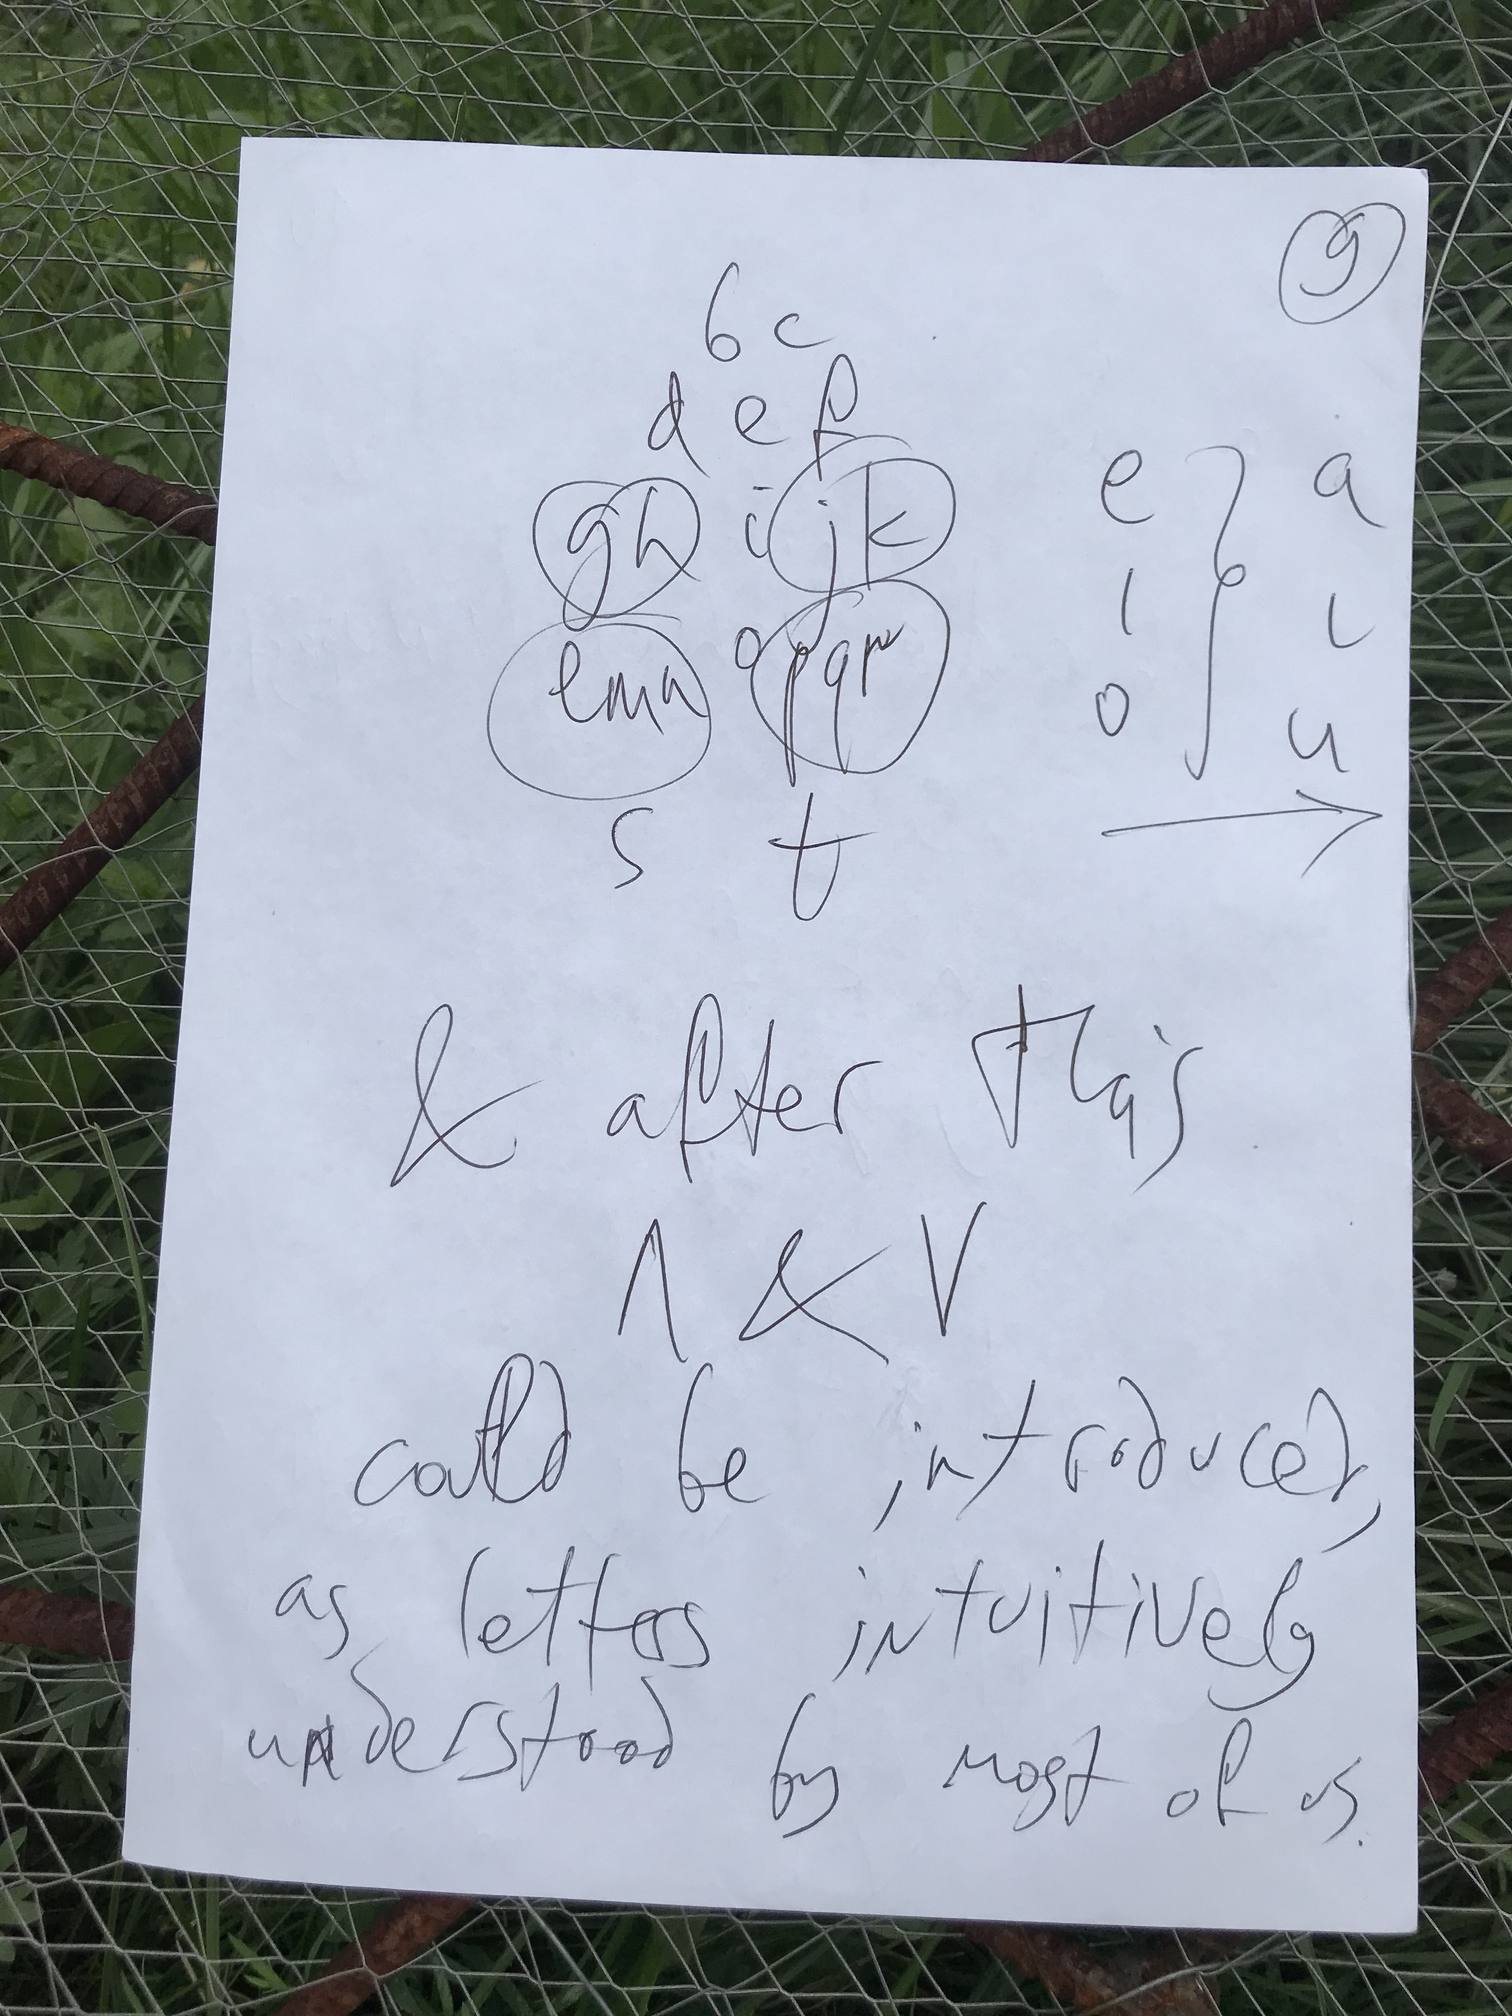 9
b c
d e f
gh i jk
lmn o pqr
s t
e } a
i i
o u
→
& after this
Λ & V
could be introduced,
as letters intuitively
understood by most of us.